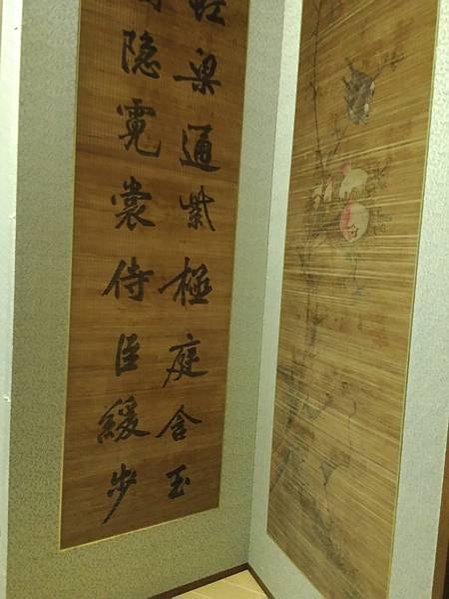 虹梁通紫極庭含玉
隐霓裳侍臣緩步